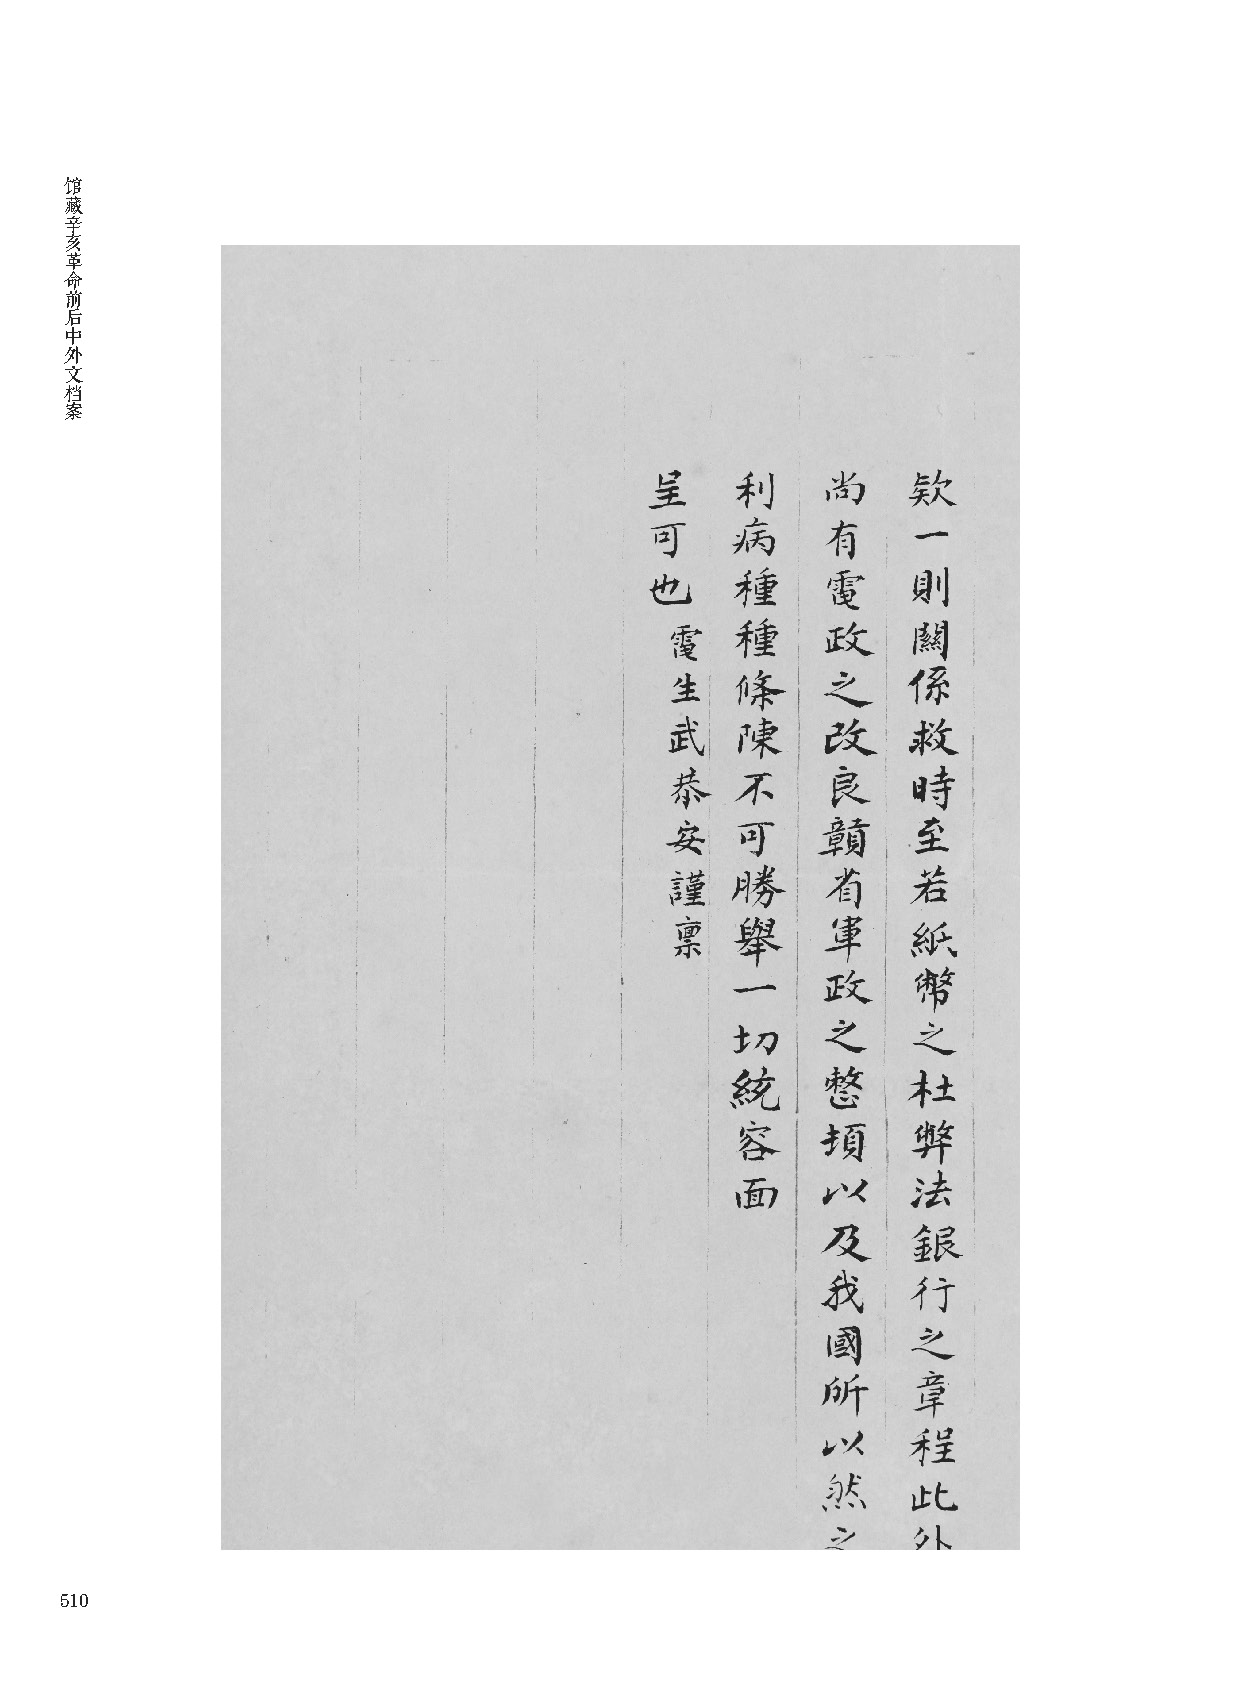 馆藏辛亥革命前后中外文档案
欵一則關係救時至若紙幣之杜弊法銀行之章程此外
尚有電政之改良贛省軍政之整頓以及我國所以然之
利病種種條陳不可勝舉一切統容面
呈可也電生武恭安謹稟
510